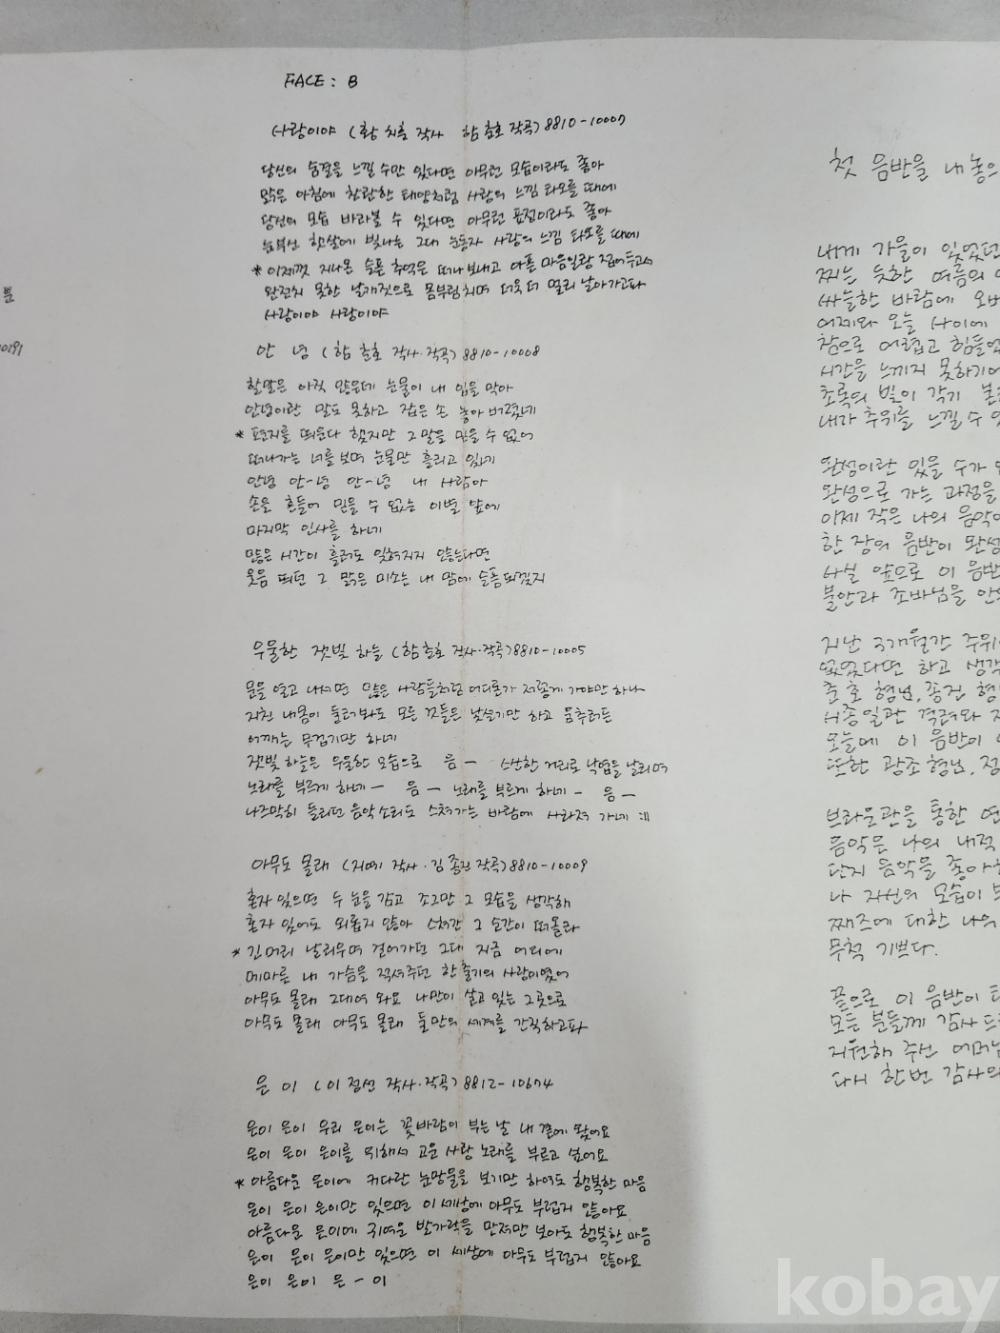 FACE : B
사랑이야 (황 치훈 작사 함 춘호 작곡) 8810-10007
당신의 숨결을 느낄 수만 있다면 아무런 모습이라도 좋아
맑은 아침에 찬란한 태양처럼 사랑의 느낌 타오를 때에
당신의 모습 바라볼 수 있다면 아무런 표정이라도 좋아
눈부신 햇살에 빛나는 그대 눈동자 사랑의 느낌 타오를 때에
* 이제껏 지나온 슬픈 추억은 떠나보내고 아픈 마음일랑 접어두고서
완전치 못한 날개짓으로 몸부림치며 더욱 더 멀리 날아가고파
사랑이야 사랑이야
안 녕 (함 춘호 작사·작곡) 8810-10008
할말은 아직 많은데 눈물이 내 입을 막아
안녕이란 말도 못하고 잡은 손 놓아 버렸네
* 편지를 띄운다 했지만 그 말을 믿을 수 없어
떠나가는 너를 보며 눈물만 흘리고 있네
안녕 안-녕 안-녕 내 사람아
손을 흔들어 믿을 수 없는 이별 앞에
마지막 인사를 하네
많은 시간이 흘러도 잊혀지지 않는다면
웃음 띄던 그 맑은 미소는 내 맘에 슬픔되겠지
우울한 잿빛 하늘 (함춘호 작사·작곡) 8810-10005
문을 열고 나서면 많은 사람들처럼 어디론가 저렇게 가야만 하나
지친 내몸이 둘러봐도 모든 것들은 낯설기만 하고 움추러든
어깨는 무겁기만 하네
잿빛 하늘은 우울한 모습으로 음 — 스산한 거리로 낙엽을 날리며
노래를 부르게 하네 — 음 — 노래를 부르게 하네 — 음 —
나즈막히 들리던 음악소리도 스쳐가는 바람에 사라져 가네 :||
아무도 몰래 (지예 작사·김 종진 작곡) 8810-10009
혼자 있으면 두 눈을 감고 조그만 그 모습을 생각해
혼자 있어도 외롭지 않아 스쳐간 그 순간이 떠올라
* 긴머리 날리우며 걸어가던 그대 지금 어디에
메마른 내 가슴을 적셔주던 한 줄기의 사랑이었어
아무도 몰래 그대여 와요 나만이 살고 있는 그곳으로
아무도 몰래 아무도 몰래 둘만의 세계를 간직하고파
은 이 (이 정선 작사·작곡) 8812-10674
은이 은이 우리 은이는 꽃바람이 부는 날 내 곁에 왔어요
은이 은이 은이를 위해서 고운 사랑 노래를 부르고 싶어요
* 아름다운 은이에 커다란 눈망울을 보기만 하여도 행복한 마음
은이 은이 은이만 있으면 이 세상에 아무도 부럽지 않아요
아름다운 은이에 귀여운 발가락을 만져만 보아도 행복한 마음
은이 은이 은이만 있으면 이 세상에 아무도 부럽지 않아요
은이 은이 은 - 이
분
10191
첫 음반을 내놓으
내게 가을이 있었던
찌는 듯한 여름의
싸늘한 바람에 오버
어제와 오늘 사이에
참으로 어렵고 힘들었
시간을 느끼지 못하기에
초록의 빛이 각기
내가 추위를 느낄 수 있
완성이란 있을 수가
완성으로 가는 과정을
이제 작은 나의 음악이
한 장의 음반이 완성
사실 앞으로 이 음반
불안과 조바심을 안
지난 3개월간 주위
없었다면 하고 생각
춘호 형님, 종진 형
시종일관 격려와
오늘에 이 음반이
또한 광조 형님,
브라운관을 통한 연
음악은 나의 내적
단지 음악을 좋아
나 자신의 모습이
째즈에 대한 나의
무척 기쁘다.
끝으로 이 음반이
모든 분들께 감사드
지원해 주신 어머님
다시 한번 감사의
kobay